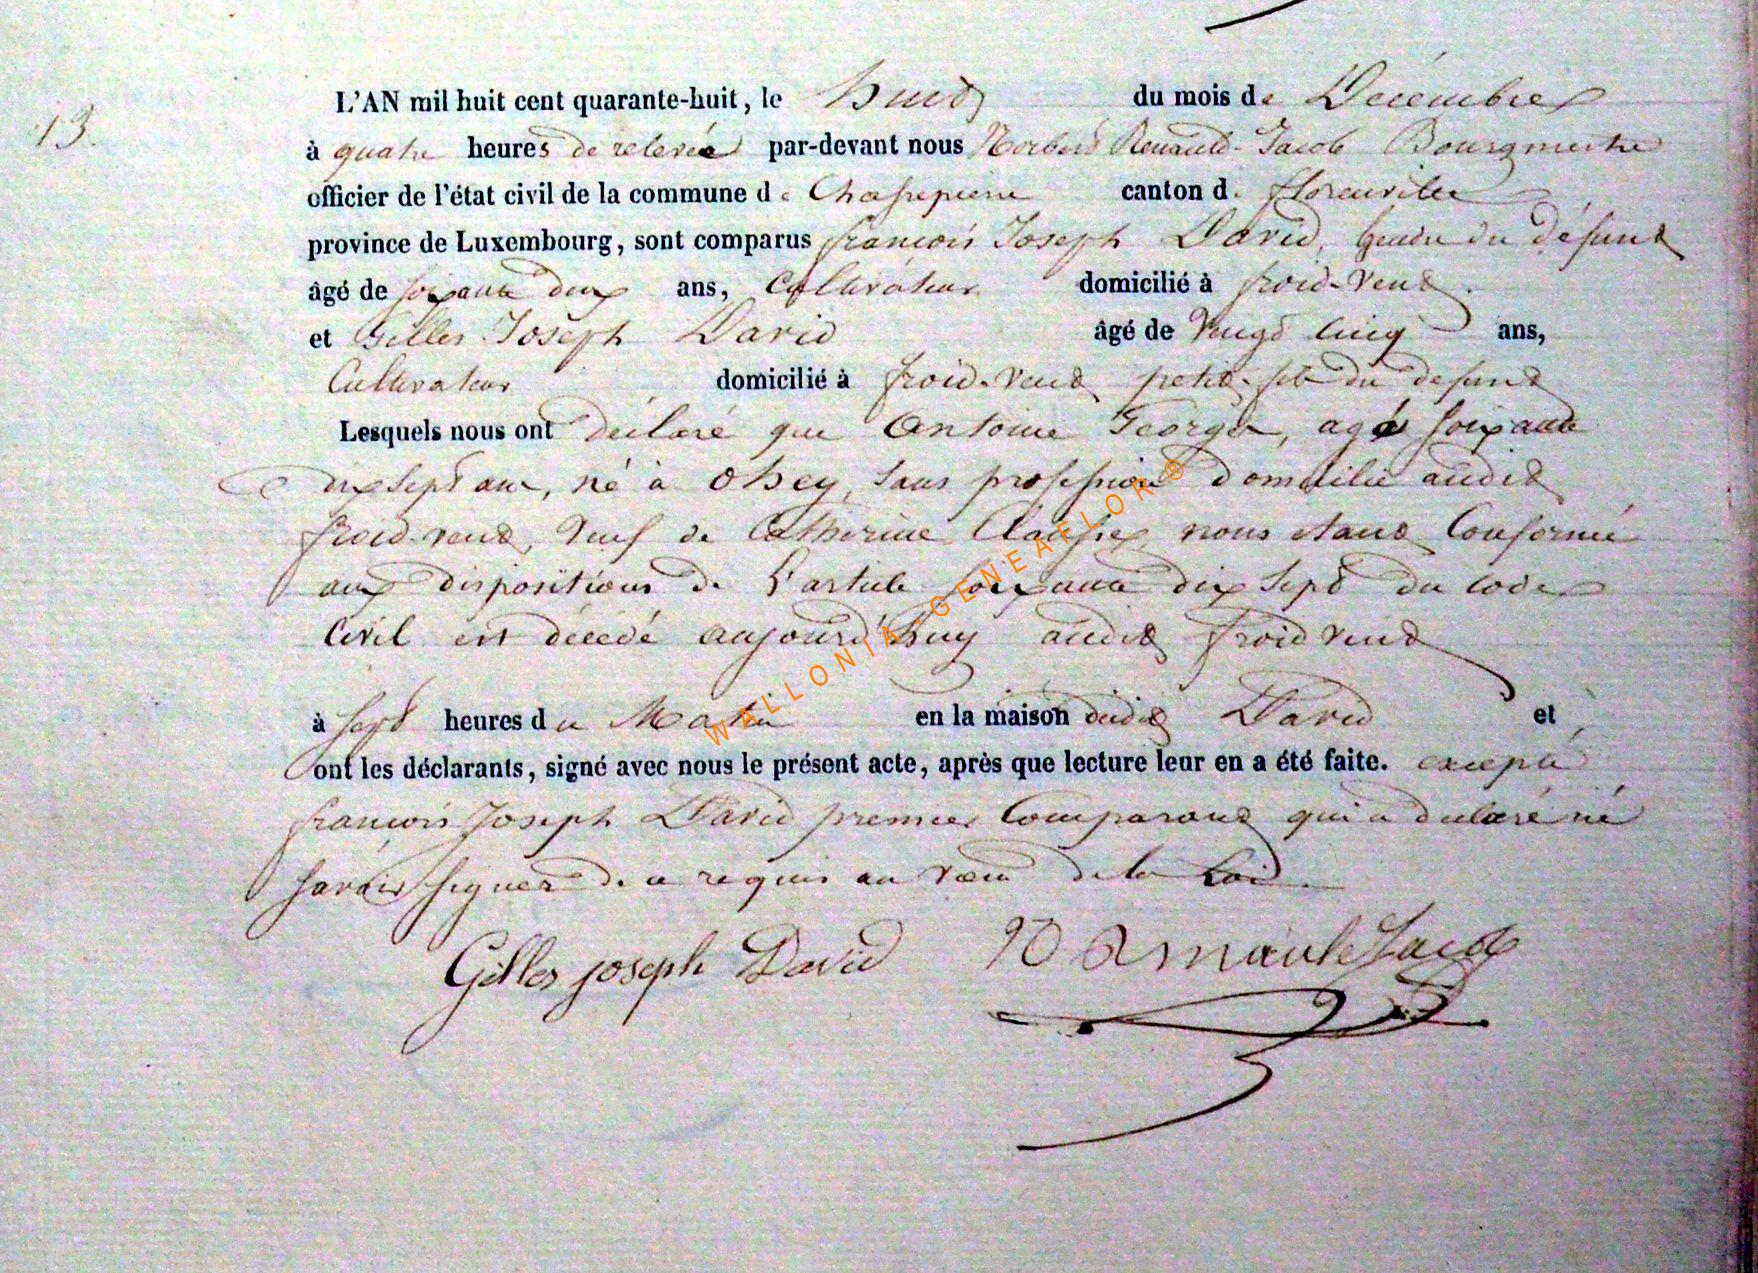 13.
L'AN mil huit cent quarante-huit, le huit du mois de Décembre
à quatre heures de relevée par-devant nous Norbert Renauld-Jacob Bourgmestre
officier de l'état civil de la commune de Chassepierre canton d. florenville
province de Luxembourg, sont comparus françois Joseph David, gendre du défunt
âgé de soixante deux ans, Cultivateur domicilié à froid-vent.
et Gilles Joseph David âgé de vingt cinq ans,
Cultivateur domicilié à froid-vent petit-fils du defunt
Lesquels nous ont déclaré que Antoine Georges, agé soixante
dix sept ans, né à , sans profession domicilié audit
froid-vent, veuf de Catherine nous étant Conformé
aux dispositions de l'article soixante dix sept du code
Civil est décédé aujourd'huy audit froid vent
à sept heures du Matin en la maison dudit David et
ont les déclarants, signé avec nous le présent acte, après que lecture leur en a été faite. excepté
françois Joseph David premier Comparant qui a déclaré né
savoir signer de ce requis au vœu de la Loi.
Gilles joseph David Jacob
WALLONIA-GENEAFLOR®